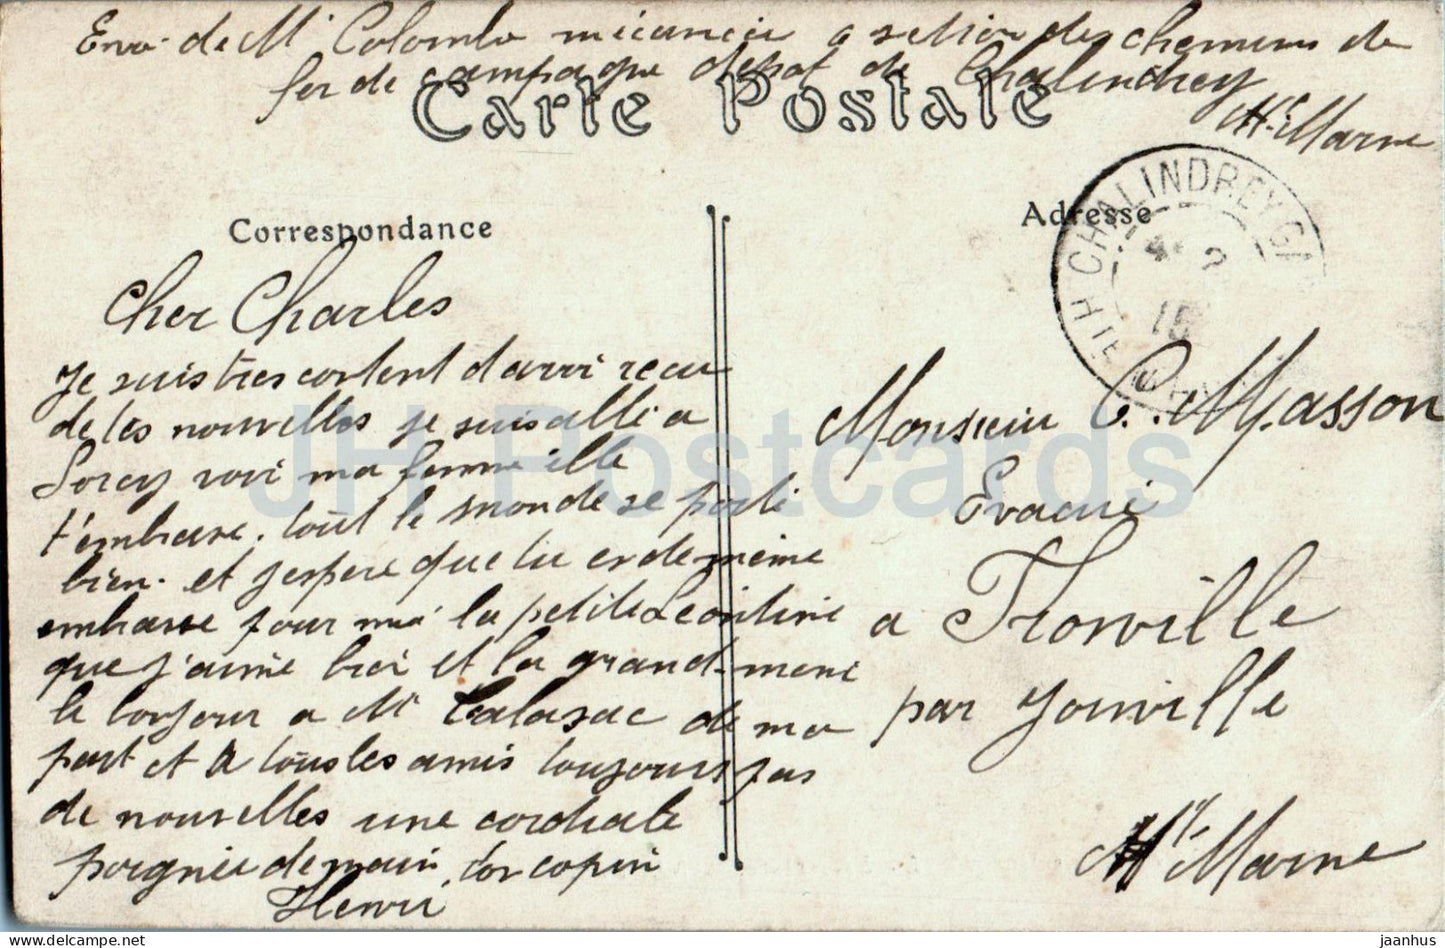 Envoi de Mr Colombo mécanicie a section des chemins de
fer de campagne depot de Chalindrey
Hte Marne
Carte Postale
Correspondance
Adresse
CHALINDREY GA
HTE MARNE
15
Cher Charles
Je suis tres contant d'avoir recu
de tes nouvelles je suis allé a
Sorcy voir ma femme elle
t'embrase. tout le monde se porte
bien. et j'espere que tu es de même
embrasse pour moi la petite Leontine
que j'aime bien et la grand-mere
le bonjour a Mr Calasac de ma
part et a tous les amis toujours pas
de nouvelles une cordiale
poignée de main ton copin
Henri
Monsieur C. Masson
Evacué
a Tronville
par Joinville
Hte Marne
JH Postcards
jaanhus — https://www.delcampe.net